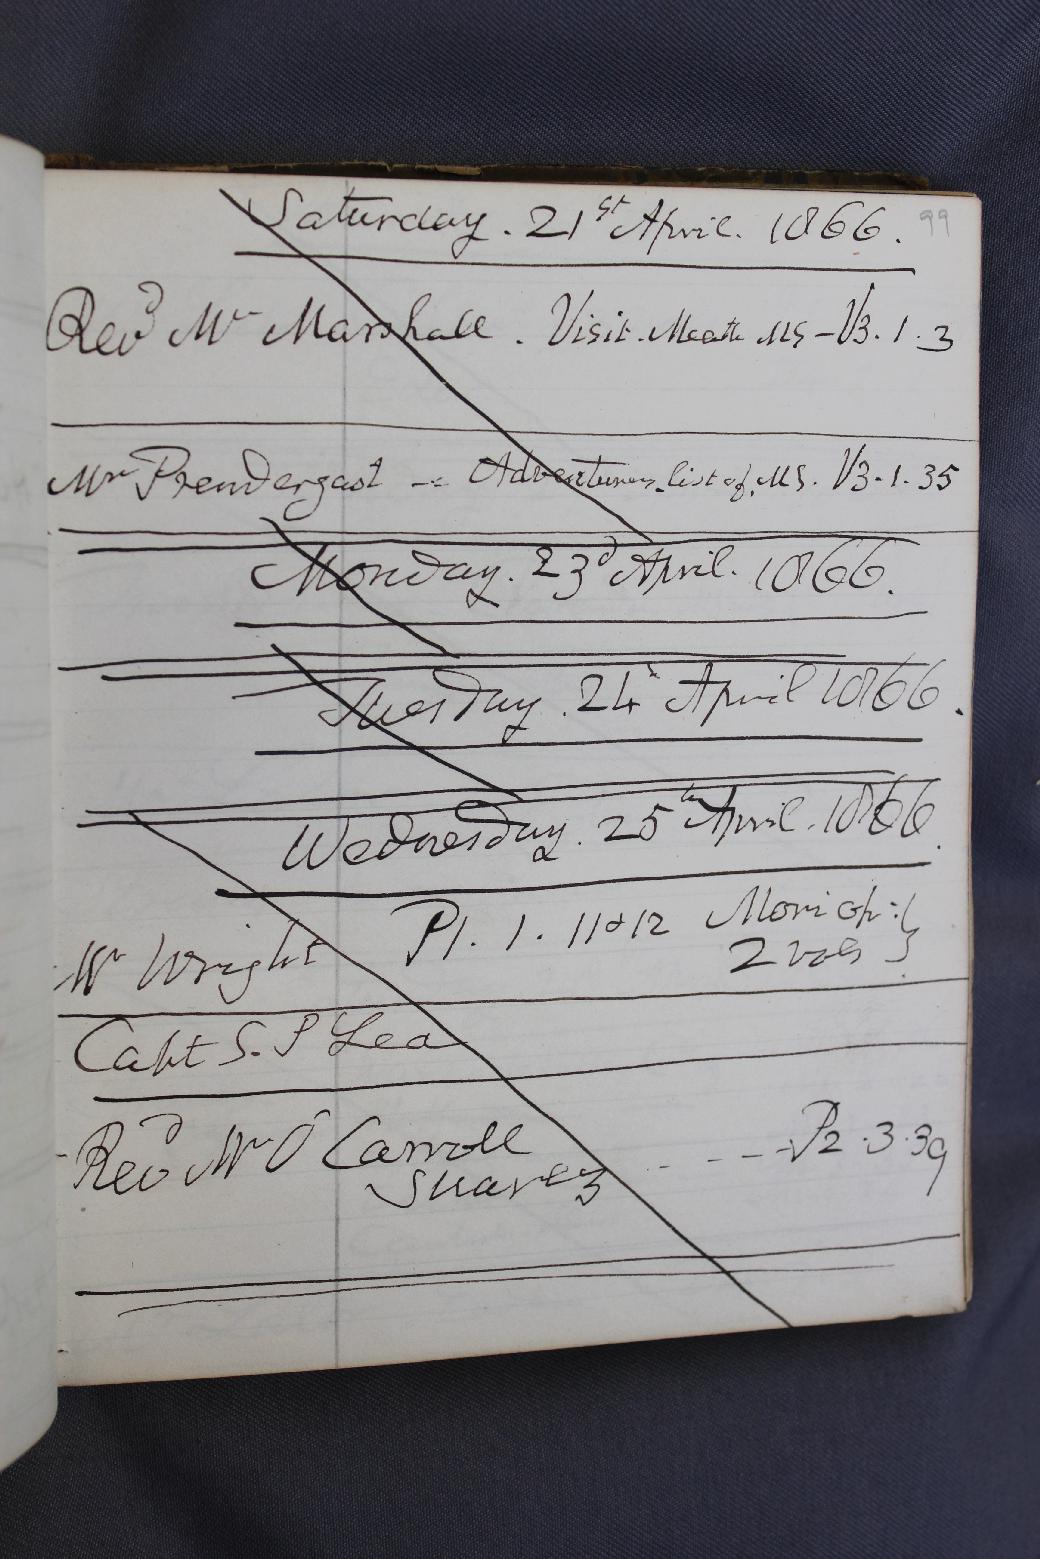 Saturday. 21st April. 1866. 99
Revd Mr Marshall. Visit. Meath MS - V3.1.3
Mr Prendergast -- Adventurers list of MS. V3.1.35
Monday. 23d April. 1866.
Tuesday. 24 April 1866.
Wednesday. 25th April. 1866.
P1. 1. 11&12 Mori op:
Mr Wright 2 vols
Capt S. P Lea
Revd Mr O'Carroll ---- P2.3.39
Suarez